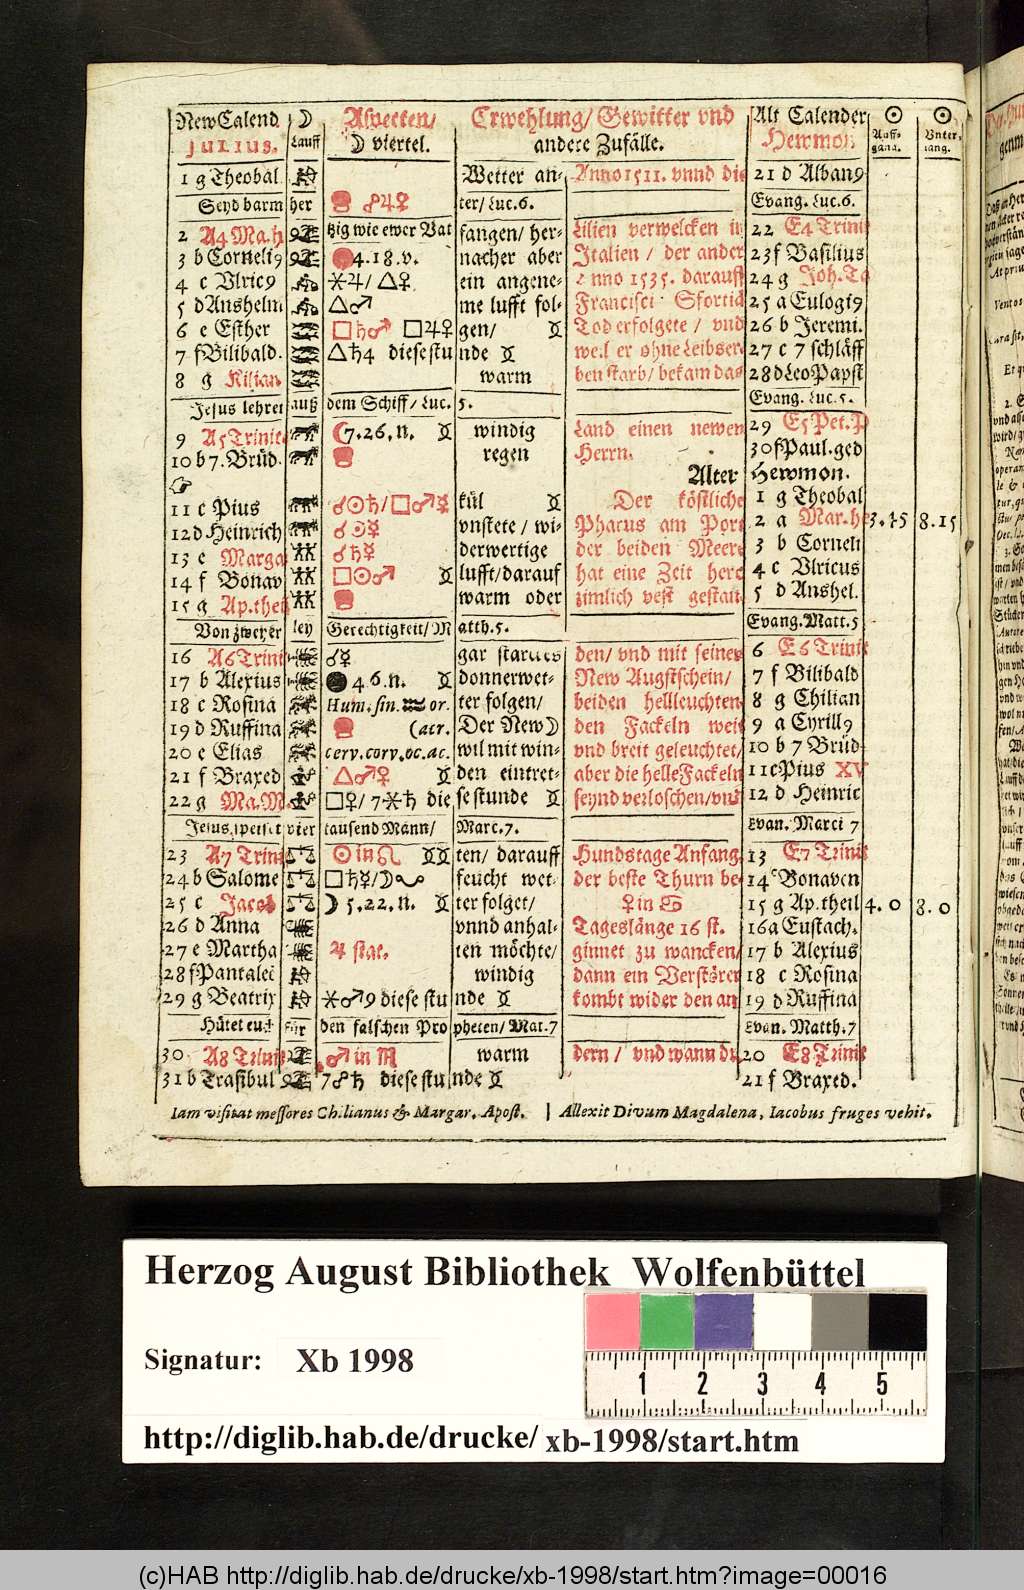 New Calend. ☽ Aspecten/ Erwehlung/ Gewitter vnd Alt Calender ☉ ☉
Julius. Lauff ☽ viertel. andere Zufälle. Hewmon Auff- Vnter-
gang. gang.
1 g Theobal. Wetter an- Anno 1511. vnnd die 21 d Alban9
Seyd barm her ☍♃♀ ter/ Luc. 6. Evang. Luc. 6.
2 A4 Ma. h tzig wie ewer Vat fangen/ her- Lilien verwelcken in 22 E4 Trinit
3 b Corneli9 4. 18. v. nacher aber Italien / der ander 23 f Basilius
4 c Vlric9 ⚹♃/ △♀ ein angene- Anno 1535. darauff 24 g Joh. Ta
5 d Anshelm △♂ me lufft fol- Francisci Sfortiae 25 a Eulogi9
6 e Esther □♄♂ □♃♀ gen/ ♊ Tod erfolgete / vnd 26 b Jeremi.
7 f Bilibald. △♄4 diese stu nde ♊ weil er ohne Leibser- 27 c 7 schläff
8 g Kilian warm ben starb/ bekam das 28 d Leo Papst
Jesus lehret auß dem Schiff/ Luc. 5. Evang. Luc. 5.
9 A5 Trinit. ☾7. 26. n. ♊ windig Land einen newen 29 E5 Pet. P
10 b 7. Brüd. regen Herrn. 30 f Paul. ged
☞ Alter Hewmon.
11 c Pius ☌☉♄/□♂☿ kül ♊ Der köstliche 1 g Theobal
12 d Heinrich ☌☉☿ vnstete / wi- Pharus am Port 2 a Mar. he 3. 45 8. 15
13 e Marga ☌♄☿ derwertige der beiden Meere 3 b Corneli
14 f Bonav □☉♂ ♊ lufft/darauf hat eine Zeit hero 4 c Vlricus
15 g Ap. theil warm oder zimlich vest gestan- 5 d Anshel.
Von zweyer ley Gerechtigkeit/ M atth. 5. Evang. Matt. 5
16 A6 Trinit ☌☿ gar starckes den/ vnd mit seinen 6 E6 Trinit
17 b Alexius ● 4 6. n. ♊ donnerwet- New Augstschein/ 7 f Bilibald
18 c Rosina Hum. sin. ♒ or. ter folgen/ beiden hellleuchten- 8 g Chilian
19 d Ruffina (acr. Der New☽ den Fackeln weit 9 a Cyrill9
20 e Elias cerv. corv. oc. ac. wil mit win- vnd breit geleuchtet/ 10 b 7 Brüd
21 f Braxed △♂♀ ♊ den eintret- aber die helle Fackeln 11 c Pius XV
22 g Ma. M. □♀/ 7⚹♄ die se stunde ♊ seynd verloschen/vnd 12 d Heinric
Jesus speiset vier tausend Mann/ Marc. 7. Evan. Marci 7
23 A7 Trinit ☉ in ♌ ♊♊ ten/ darauff Hundstage Anfang. 13 E7 Trinit
24 b Salome □♄☿/☽☋ feucht wet- der beste Thurn be- 14 c Bonaven
25 c Jacob ☽ 5. 22. n. ♊ ter folget/ ♀ in ♋ 15 g Ap. theil 4. 0 8. 0
26 d Anna vnnd anhal- Tageslänge 16 st. 16 a Eustach.
27 e Martha ♃ stat. ten möchte/ ginnet zu wancken/ 17 b Alexius
28 f Pantalei windig dann ein Verstörer 18 c Rosina
29 g Beatrix ⚹♂9 diese stu nde ♊ kombt wider den an- 19 d Ruffina
Hütet euch für den falschen Pro pheten/ Mat. 7 Evan. Matth. 7
30 A8 Trinit ♂ in ♏ warm dern / vnd wann du 20 E8 Trinit
31 b Trasibul 7☍♄ diese stu nde ♊ 21 f Braxed.
Iam visitat messores Chilianus & Margar. Apost. | Allexit Divum Magdalena, Iacobus fruges vehit.
Herzog August Bibliothek Wolfenbüttel
Signatur: Xb 1998
1 2 3 4 5
http://diglib.hab.de/drucke/ xb-1998/start.htm
(c)HAB http://diglib.hab.de/drucke/xb-1998/start.htm?image=00016